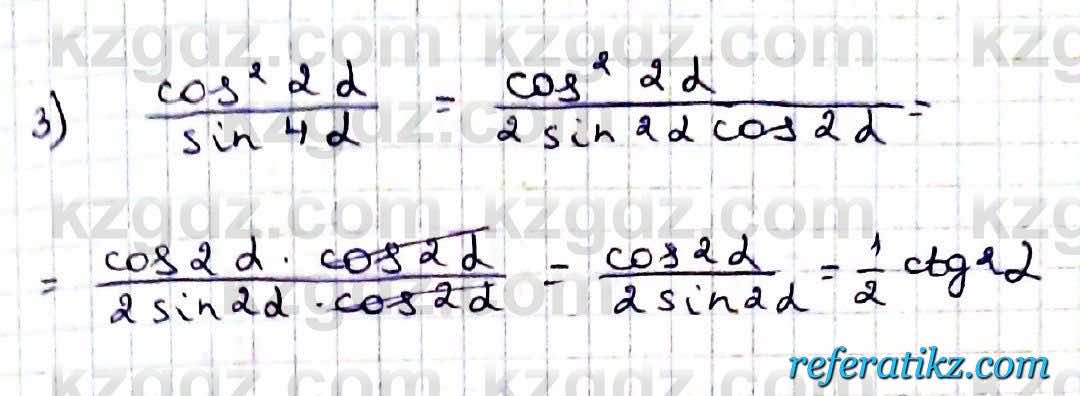 kzgdz.com kzgdz.com kz
3) cos² 2α / sin 4α = cos² 2α / 2 sin 2α cos 2α =
kzgdz.com kzgdz.com kz
= cos 2α · cos 2α / 2 sin 2α · cos 2α = cos 2α / 2 sin 2α = 1/2 ctg 2α
referatikz.com